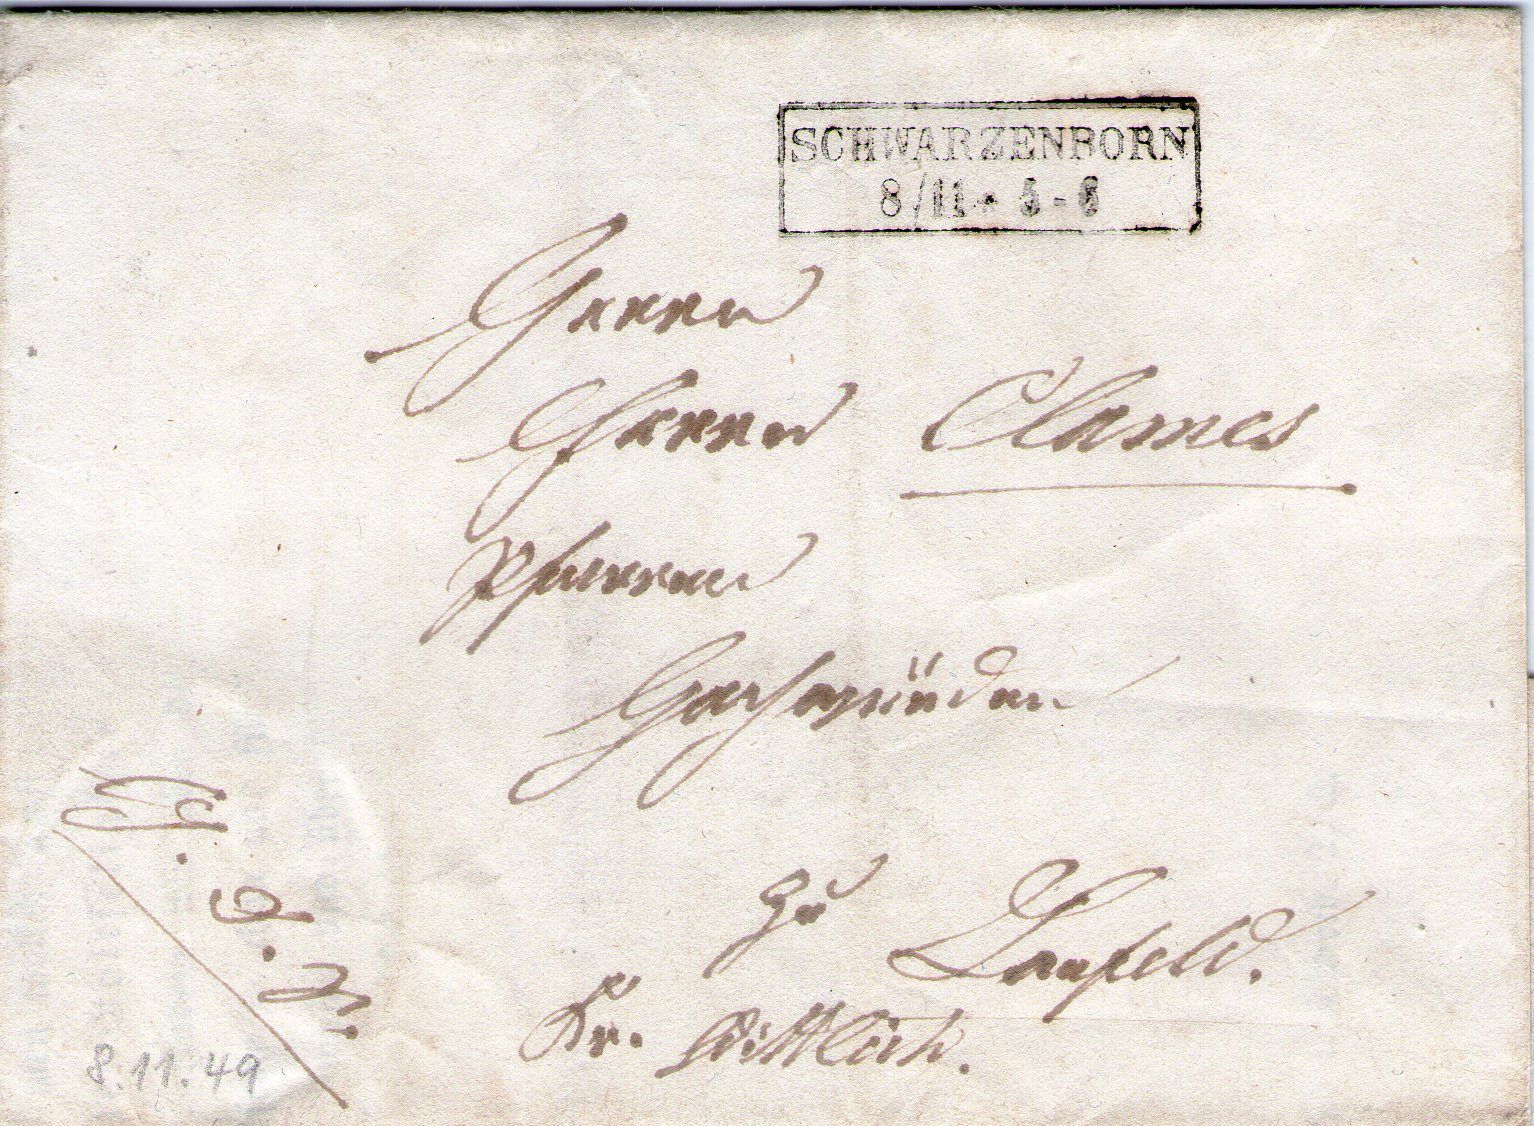 SCHWARZENBORN
8/11 * 5-6
Herrn
Herrn Clames
Pfarrer
Hochwürden
zu Laufeld.
Kr. Wittlich.
8.11.49